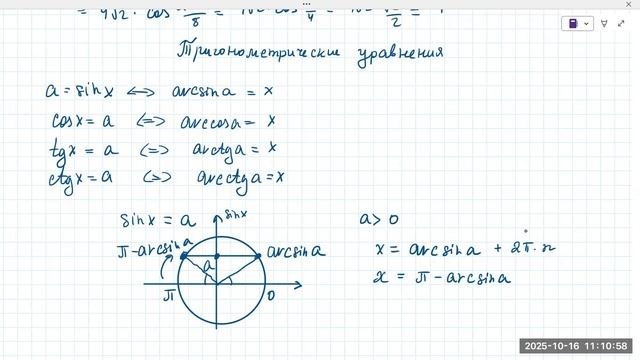 Тригонометрические уравнения
a = sinx <=> arcsina = x
cosx = a <=> arccosa = x
tgx = a <=> arctga = x
ctgx = a <=> arcctga = x
sinx = a
sinx
a > 0
π - arcsina
arcsina
a
x = arcsina + 2π·n
x = π - arcsina
π
0
2025-10-16 11:10:58